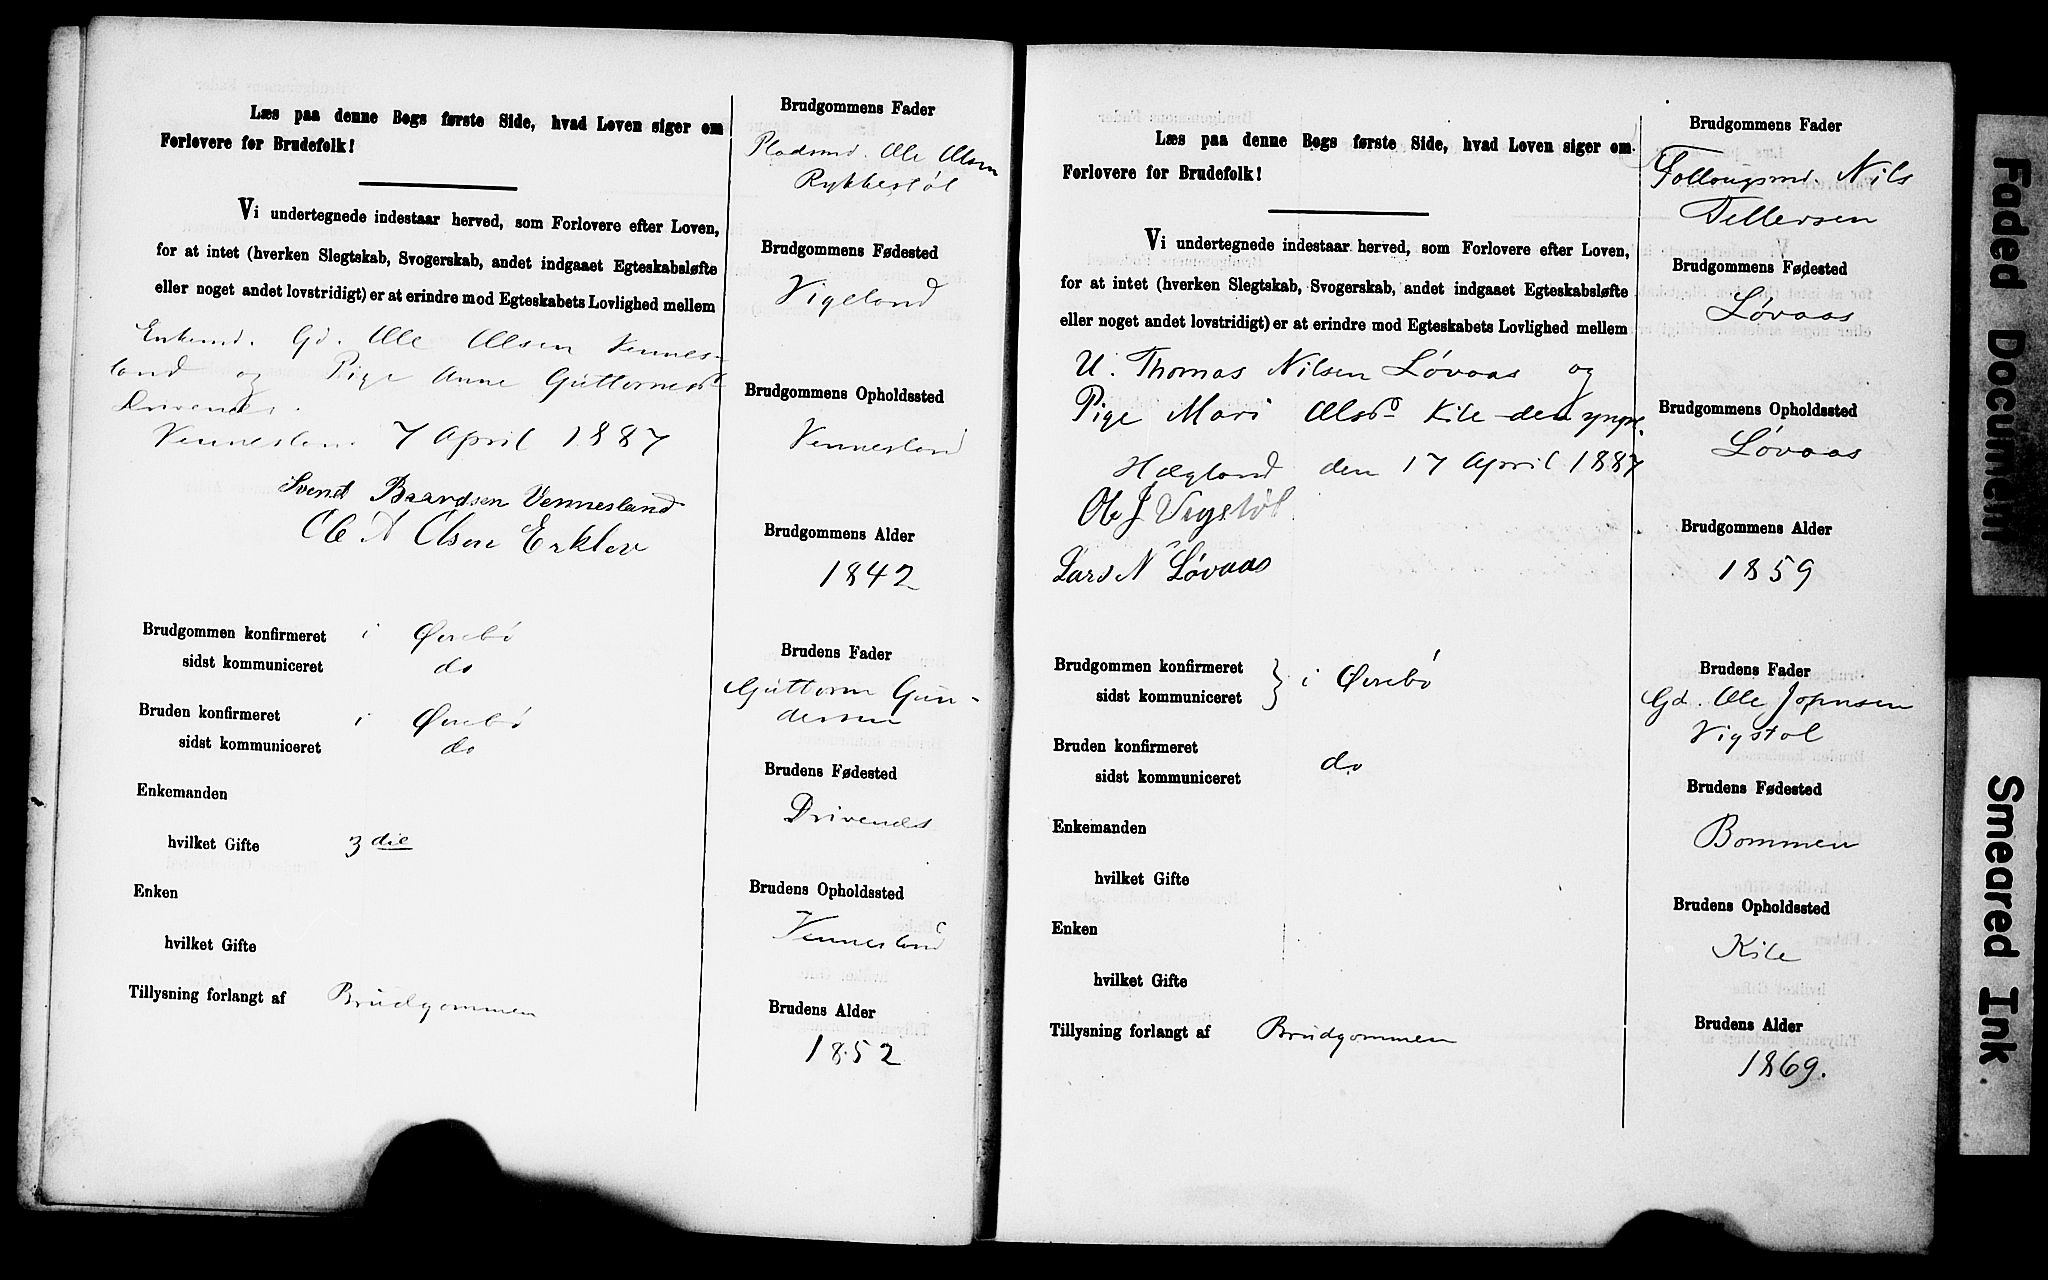 Læs paa denne Bogs første Side, hvad Loven siger om
Forlovere for Brudefolk!
Vi undertegnede indestaar herved, som Forlovere efter Loven,
for at intet (hverken Slegtskab, Svogerskab, andet indgaaet Egteskabsløfte
eller noget andet lovstridigt) er at erindre mod Egteskabets Lovlighed mellem
Enkemd. Gd. Ole Olsen Vennes-
land og Pige Anne Guttormsd
Drivenes.
Vennesland 7 April 1887
Svend Baardsen Vennesland
Ole A Olsen Erklev
Brudgommen konfirmeret i Øvrebø
sidst kommuniceret do
Bruden konfirmeret i Øvrebø
sidst kommuniceret do
Enkemanden
hvilket Gifte 3 die
Enken
hvilket Gifte
Tillysning forlangt af Brudgommen
Brudgommens Fader
Pladsmd. Ole Olsen
Rykkestøl
Brudgommens Fødested
Vigeland
Brudgommens Opholdssted
Vennesland
Brudgommens Alder
1842
Brudens Fader
Guttorm Gun-
dersen
Brudens Fødested
Drivenes
Brudens Opholdssted
Vennesland
Brudens Alder
1852
Læs paa denne Bogs første Side, hvad Loven siger om
Forlovere for Brudefolk!
Vi undertegnede indestaar herved, som Forlovere efter Loven,
for at intet (hverken Slegtskab, Svogerskab, andet indgaaet Egteskabsløfte
eller noget andet lovstridigt) er at erindre mod Egteskabets Lovlighed mellem
U. Thomas Nilsen Løvaas og
Pige Mari Olsd Kile den yngr.
Hægland den 17 April 1887
Ole J Vigstøl
Lars N Løvaas
Brudgommen konfirmeret } i Øvrebø
sidst kommuniceret
Bruden konfirmeret do
sidst kommuniceret
Enkemanden
hvilket Gifte
Enken
hvilket Gifte
Tillysning forlangt af Brudgommen
Brudgommens Fader
Follougsmd. Nils
Tellersen
Brudgommens Fødested
Løvaas
Brudgommens Opholdssted
Løvaas
Brudgommens Alder
1859
Brudens Fader
Gd. Ole Johnsen
Vigstøl
Brudens Fødested
Bommen
Brudens Opholdssted
Kile
Brudens Alder
1869.
Faded Document
Smeared Ink